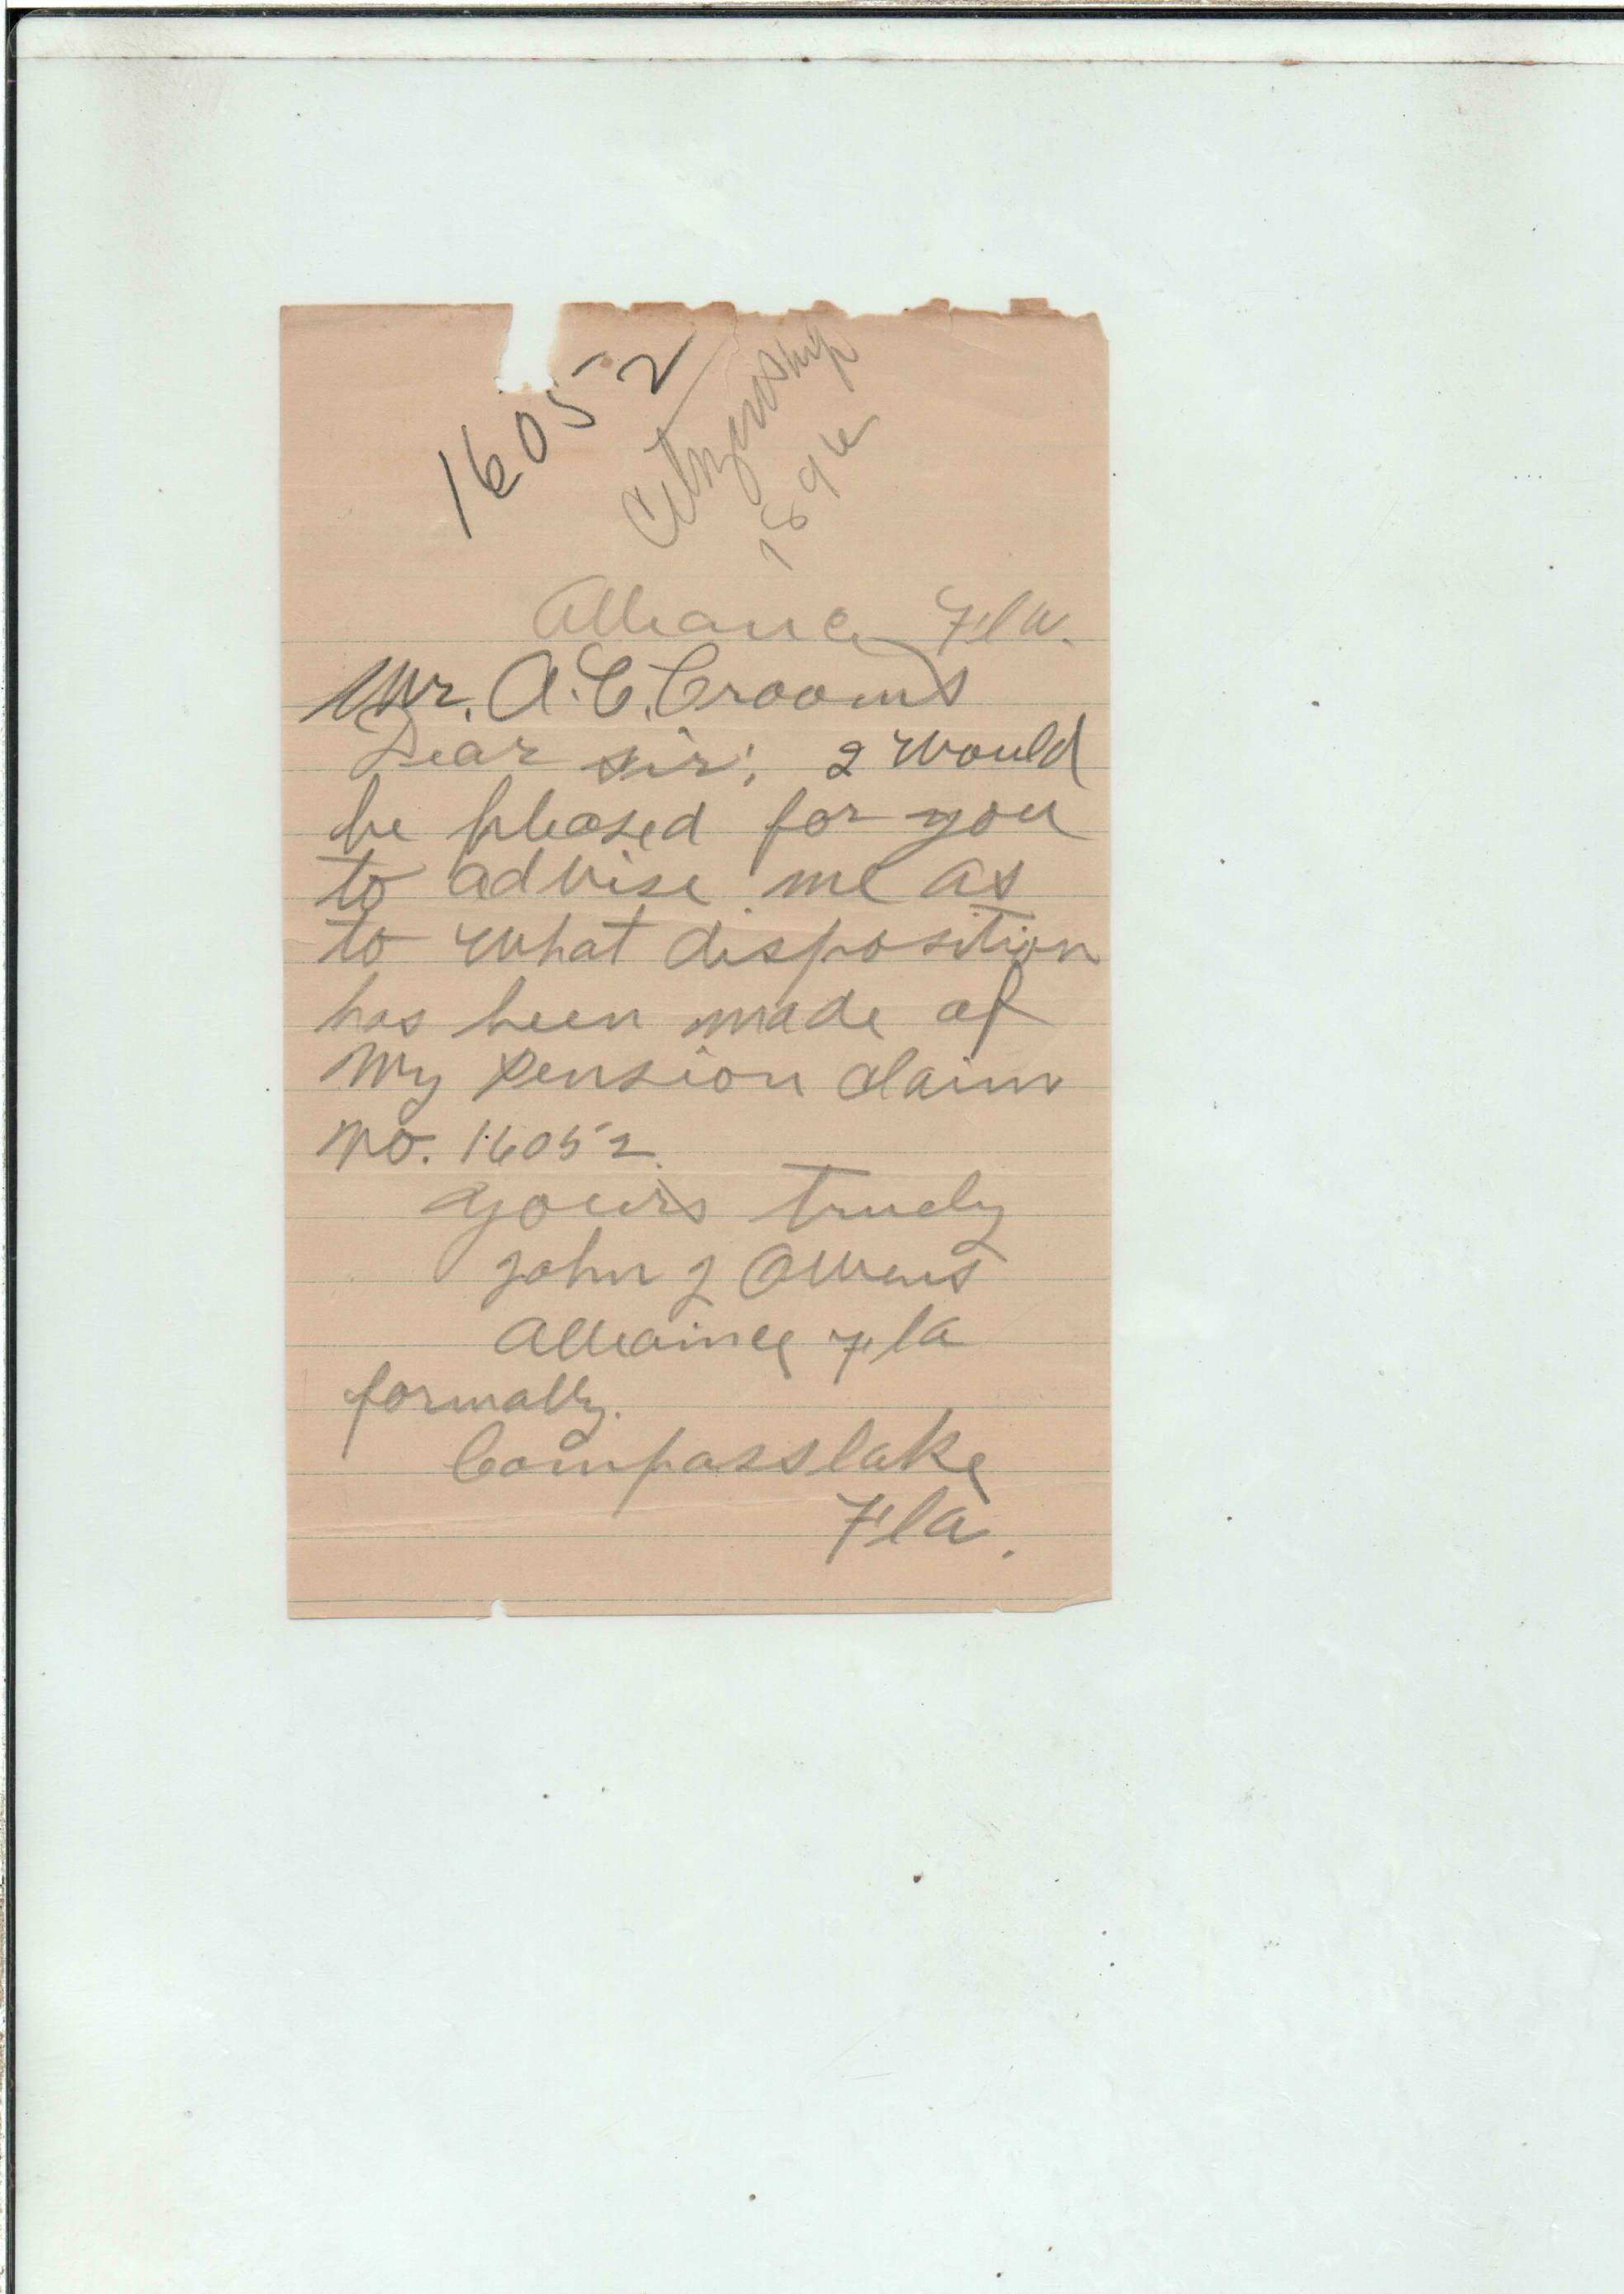 16052
Citizenship
189
Alliance Fla.
Mr. A. C. Crooms
Dear sir; I would
be pleased for you
to advise me as
to what disposition
has been made of
My pension claim
No. 16052.
yours truely
John J Owens
Alliance Fla
formally.
Compasslake
Fla.